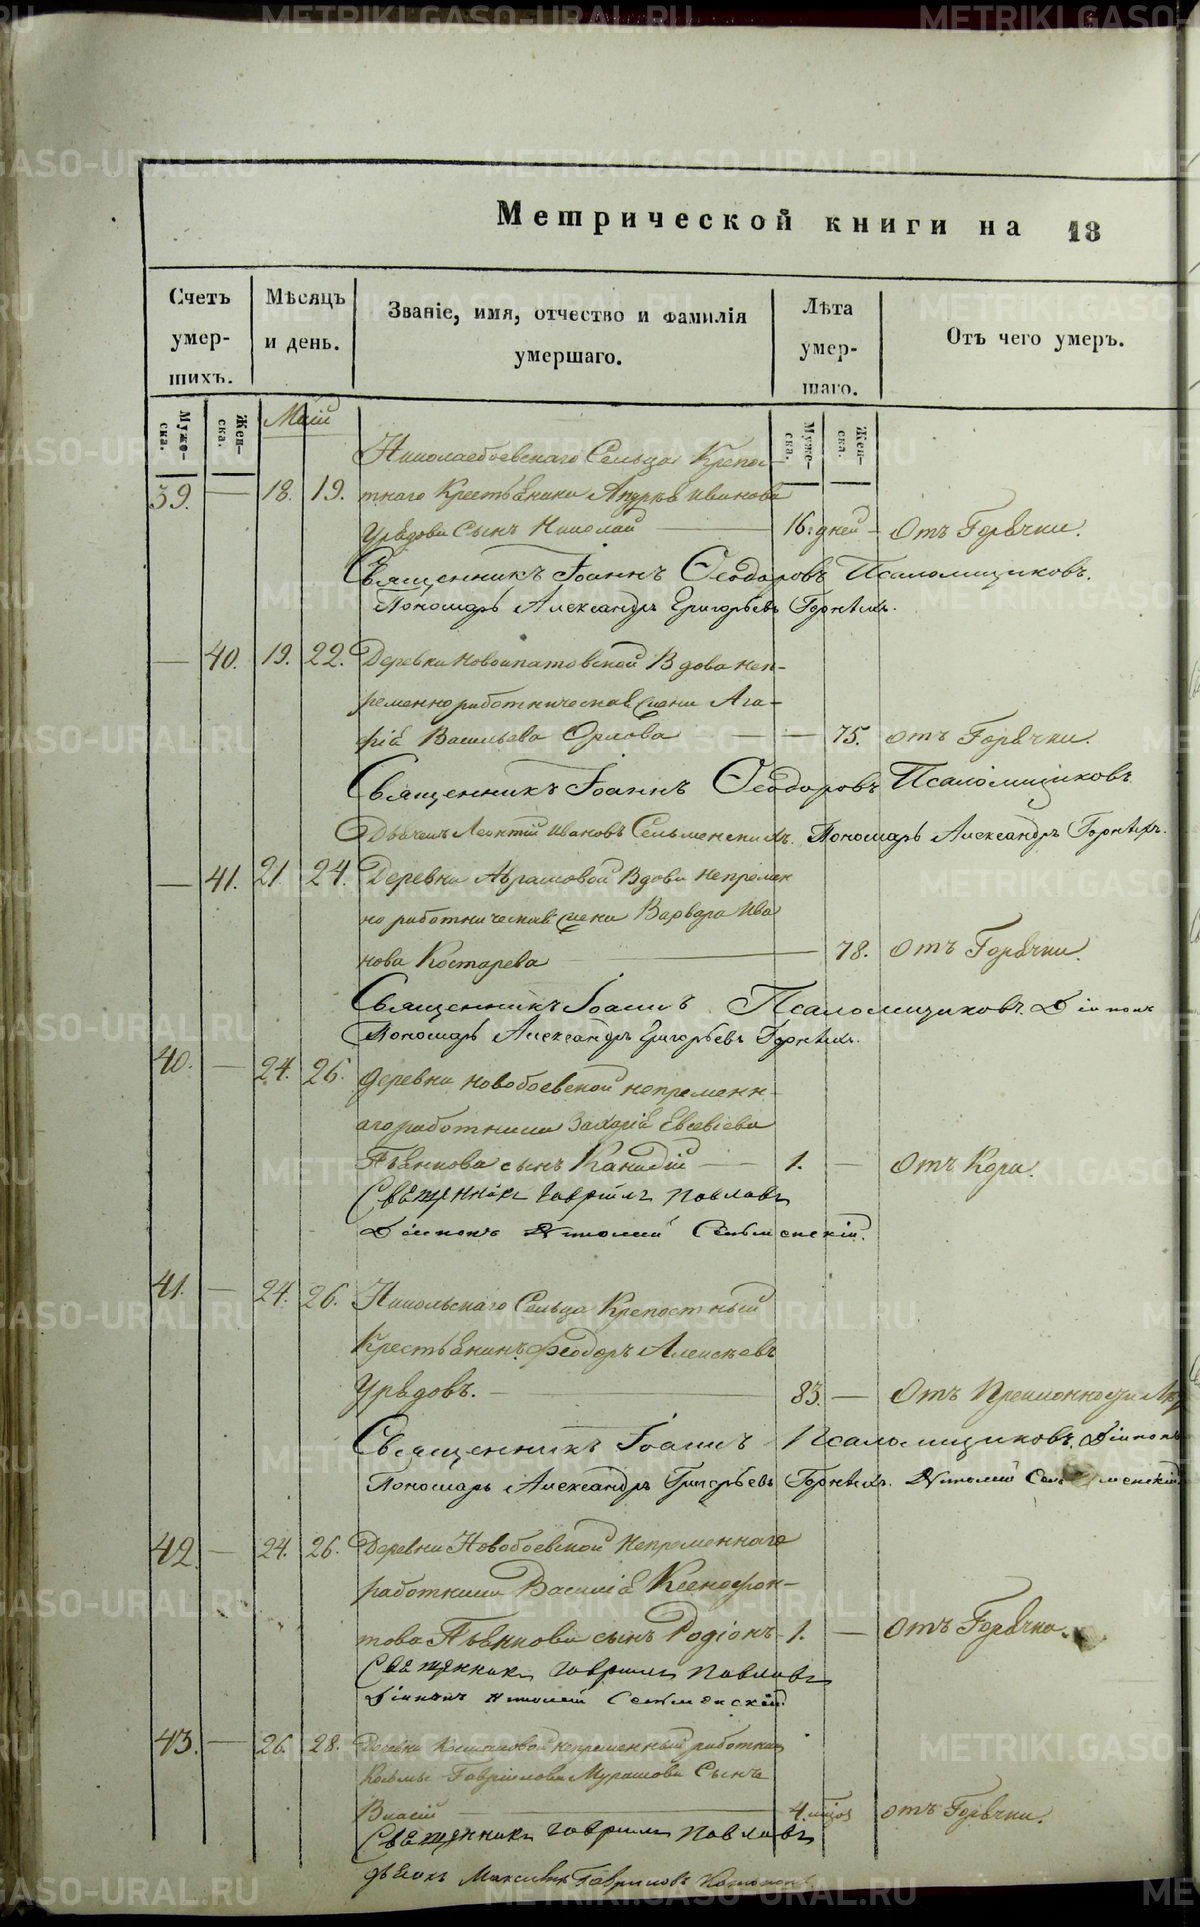 Метрической книги на 18
Счетъ умер- шихъ.
Мѣсяцъ и день.
Званіе, имя, отчество и фамилія умершаго.
Лѣта умер- шаго.
Отъ чего умеръ.
Муже- ска.
Жен- ска.
Май
Муже- ска.
Жен- ска.
Николаебоевскаго Сельца Крепос-
39. — 18. 19. тнаго Крестьянина Андрея Иванова
Урядова Сынъ Николай — 16. дней — Отъ Горячки.
Священникъ Іоаннъ Ѳеодоровъ Псаломщиковъ.
Пономарь Александръ Григорьевъ Горныхъ.
— 40. 19. 22. Деревни Новоипатовской Вдова неп-
ременно работническая жена Ага-
фія Васильева Орлова — — 75. отъ Горячки.
Священникъ Іоаннъ Ѳеодоровъ Псаломщиковъ
Леонтій Ивановъ Пономарь Александръ Горныхъ.
— 41. 21. 24. Деревни Абрамовой Вдова непремен
но работническая жена Варвара Ива
нова Костарева — 78. отъ Горячки.
Священникъ Іоаннъ Псаломщиковъ. Діаконъ
Пономарь Александръ Григорьевъ Горныхъ.
40. — 24. 26. Деревни Новобоевской непременн-
аго работника Захарія Евсевіева
Пьянкова сынъ — 1. — Отъ Кори.
Священникъ Гавріилъ Павловъ
Діаконъ
41. — 24. 26. Никольскаго Сельца Крепостный
Крестьянинъ Феодоръ Алексѣевъ
Урядовъ. — 83. — Отъ Преклонности
Священникъ Іоаннъ Псаломщиковъ. Діаконъ
Пономарь Александръ Григорьевъ Горныхъ.
42. — 24. 26. Деревни Новобоевской Непременнаго
работника Василія Ксенофон-
това Пьянкова сынъ Родіонъ 1. — отъ Горячки.
Священникъ Гавріилъ Павловъ
Діаконъ
43. — 26. 28. Деревни непременный работник
Козьмы Гавріилова Мурашова Сынъ
Власій — 4. отъ Горячки.
Священникъ Гавріилъ Павловъ
Дьячокъ Гавриловъ
METRIKI.GASO-URAL.RU